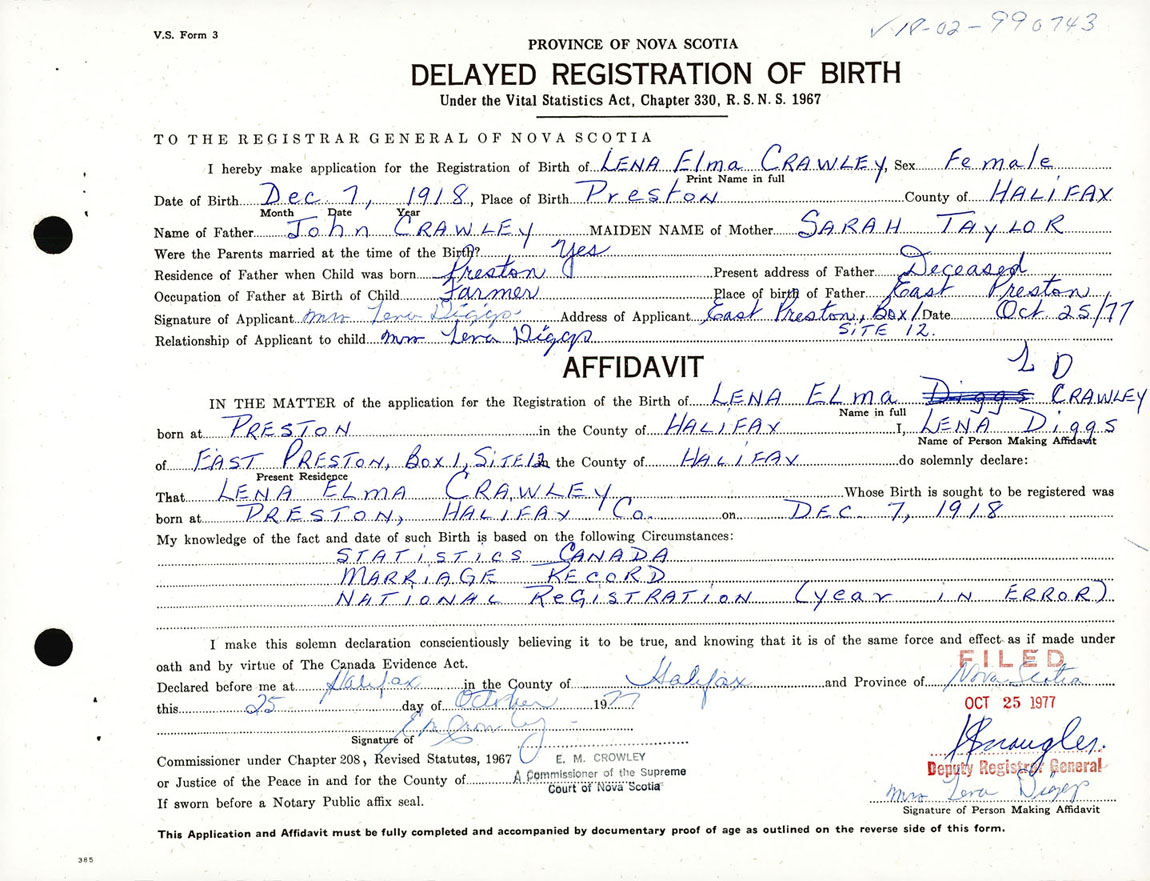 V.S. Form 3
18-02-990743
PROVINCE OF NOVA SCOTIA
DELAYED REGISTRATION OF BIRTH
Under the Vital Statistics Act, Chapter 330, R.S.N.S. 1967
TO THE REGISTRAR GENERAL OF NOVA SCOTIA
I hereby make application for the Registration of Birth of LENA Elma CRAWLEY, Sex Female
Print Name in full
Date of Birth Dec 7, 1918, Place of Birth Preston County of HALIFAX
Month Date Year
Name of Father John CRAWLEY MAIDEN NAME of Mother SARAH TAYLOR
Were the Parents married at the time of the Birth? Yes
Residence of Father when Child was born Preston Present address of Father Deceased
Occupation of Father at Birth of Child Farmer Place of birth of Father East Preston
Signature of Applicant Mrs Lena Diggs Address of Applicant East Preston, Box 1 Date Oct 25/77
SiTE 12.
Relationship of Applicant to child Mrs Lena Diggs
AFFIDAVIT
L D
IN THE MATTER of the application for the Registration of the Birth of LENA ELma Diggs CRAWLEY
Name in full
born at PRESTON in the County of HALIFAX I, LENA Diggs
Name of Person Making Affidavit
of EAST PRESTON, Box 1, SITE 12 in the County of HALIFAX do solemnly declare:
Present Residence
That LENA ELMA CRAWLEY Whose Birth is sought to be registered was
born at PRESTON, HALIFAX Co. on DEC. 7, 1918
My knowledge of the fact and date of such Birth is based on the following Circumstances:
STATISTICS CANADA
MARRIAGE RECORD
NATIONAL REGISTRATION (year IN ERROR)
I make this solemn declaration conscientiously believing it to be true, and knowing that it is of the same force and effect as if made under
oath and by virtue of The Canada Evidence Act.
FILED
Declared before me at Halifax in the County of Halifax and Province of Nova Scotia
this 25 day of October 1977
OCT 25 1977
Signature of
Commissioner under Chapter 208, Revised Statutes, 1967
E. M. CROWLEY
or Justice of the Peace in and for the County of
A Commissioner of the Supreme
Court of Nova Scotia
Deputy Registrar General
If sworn before a Notary Public affix seal.
Mrs Lena Diggs
Signature of Person Making Affidavit
This Application and Affidavit must be fully completed and accompanied by documentary proof of age as outlined on the reverse side of this form.
385